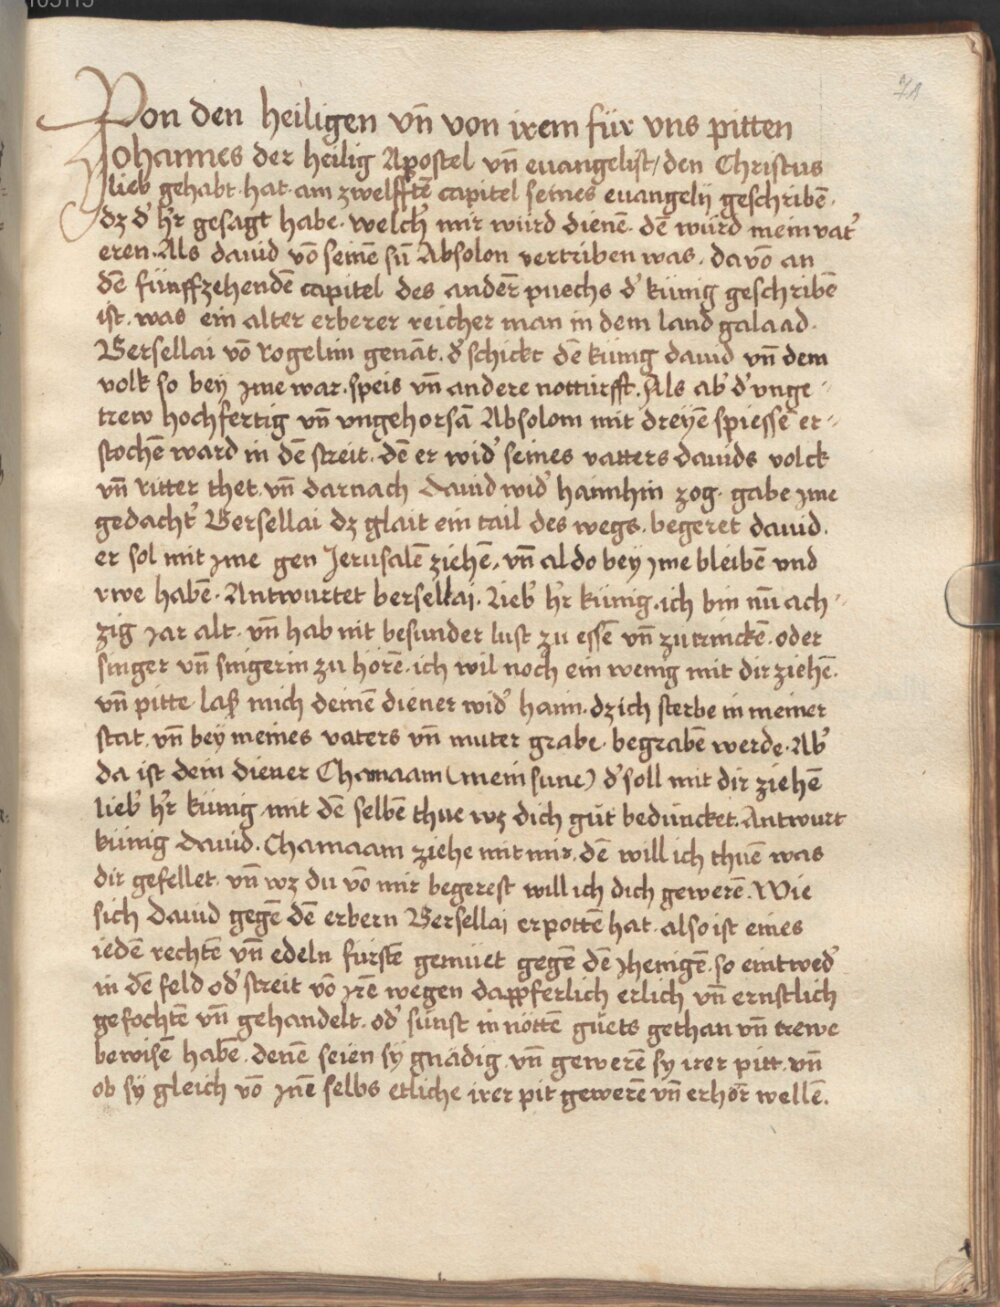 105115
71
Von den heiligen vn̄ von irem für vns pitten
Johannes der heilig Apostel vn̄ euangelist / den Christus
lieb gehabt hat · am zwelfftē capitel seines euangelij geschribē ·
dz d' h'r gesagt habe · welch' mir würd dienē · dē würd mein vat'
eren · Als dauid vō seinē sū Absolon vertriben was · da vō an
dē fünffzehendē capitel des anderr̄ puechs d' künig geschribē
ist · was ein alter erberer reicher man in dem land galaad ·
Bersellai vō Rogelim genāt · d' schickt dē künig dauid vn̄ dem
volk so beÿ jme war · speis vn̄ andere notturfft · Als ab' d' vnge⸗
trew hochfertig vn̄ vngehorsā Absolom mit dreyē spiessē er⸗
stochē ward in dē streit · dē er wid' seines vatters dauids volck
vn̄ ritter thet · vn̄ darnach dauid wid' hainhin zog · gabe jme
gedacht' Bersellai dz glait ein tail des wegs · begeret dauid ·
er sol mit jme gen Jerusalē ziehē · vn̄ aldo bey jme bleibē vnd
rwe habē · Antwurtet bersellai · lieb' h'r künig · ich bin nū ach⸗
zig jar alt · vn̄ hab nit besunder lust zu essē vn̄ zu trinckē · oder
singer vn̄ singerin zu hörē · ich wil noch ein wenig mit dir ziehē ·
vn̄ pitte laß mich deinē diener wid' haim · dz ich sterbe in meiner
stat · vn̄ bey meines vaters vn̄ muter grabe · begrabē werde · Ab'
da ist dein diener Chamaam (mein sune) d' soll mit dir ziehē
lieb' h'r künig · mit dē selbē thue wz dich gůt beduncket · Antwurt
künig dauid · Chamaam ziehe mit mir · dē will ich thuē was
dir gefellet · vn̄ wz du vō mir begerest will ich dich gewerē · Wie
sich dauid gegē dē erbern Bersellai erpottē hat · also ist eines
iedē rechtē vn̄ edeln fürstē gemüet gegē dē jhenigē · so eintwed'
in dē feld od' streit vō jrē wegen dapferlich erlich vn̄ ernstlich
gefochtē vn̄ gehandelt · od' sunst in nöttē guets gethan vn̄ trewe
bewisē habē · denē seien sÿ gnädig vn̄ gewerē sy irer pitt · vn̄
ob sÿ gleich vō jnē selbs etliche irer pit gewerē vn̄ erhörr̄ wellē ·